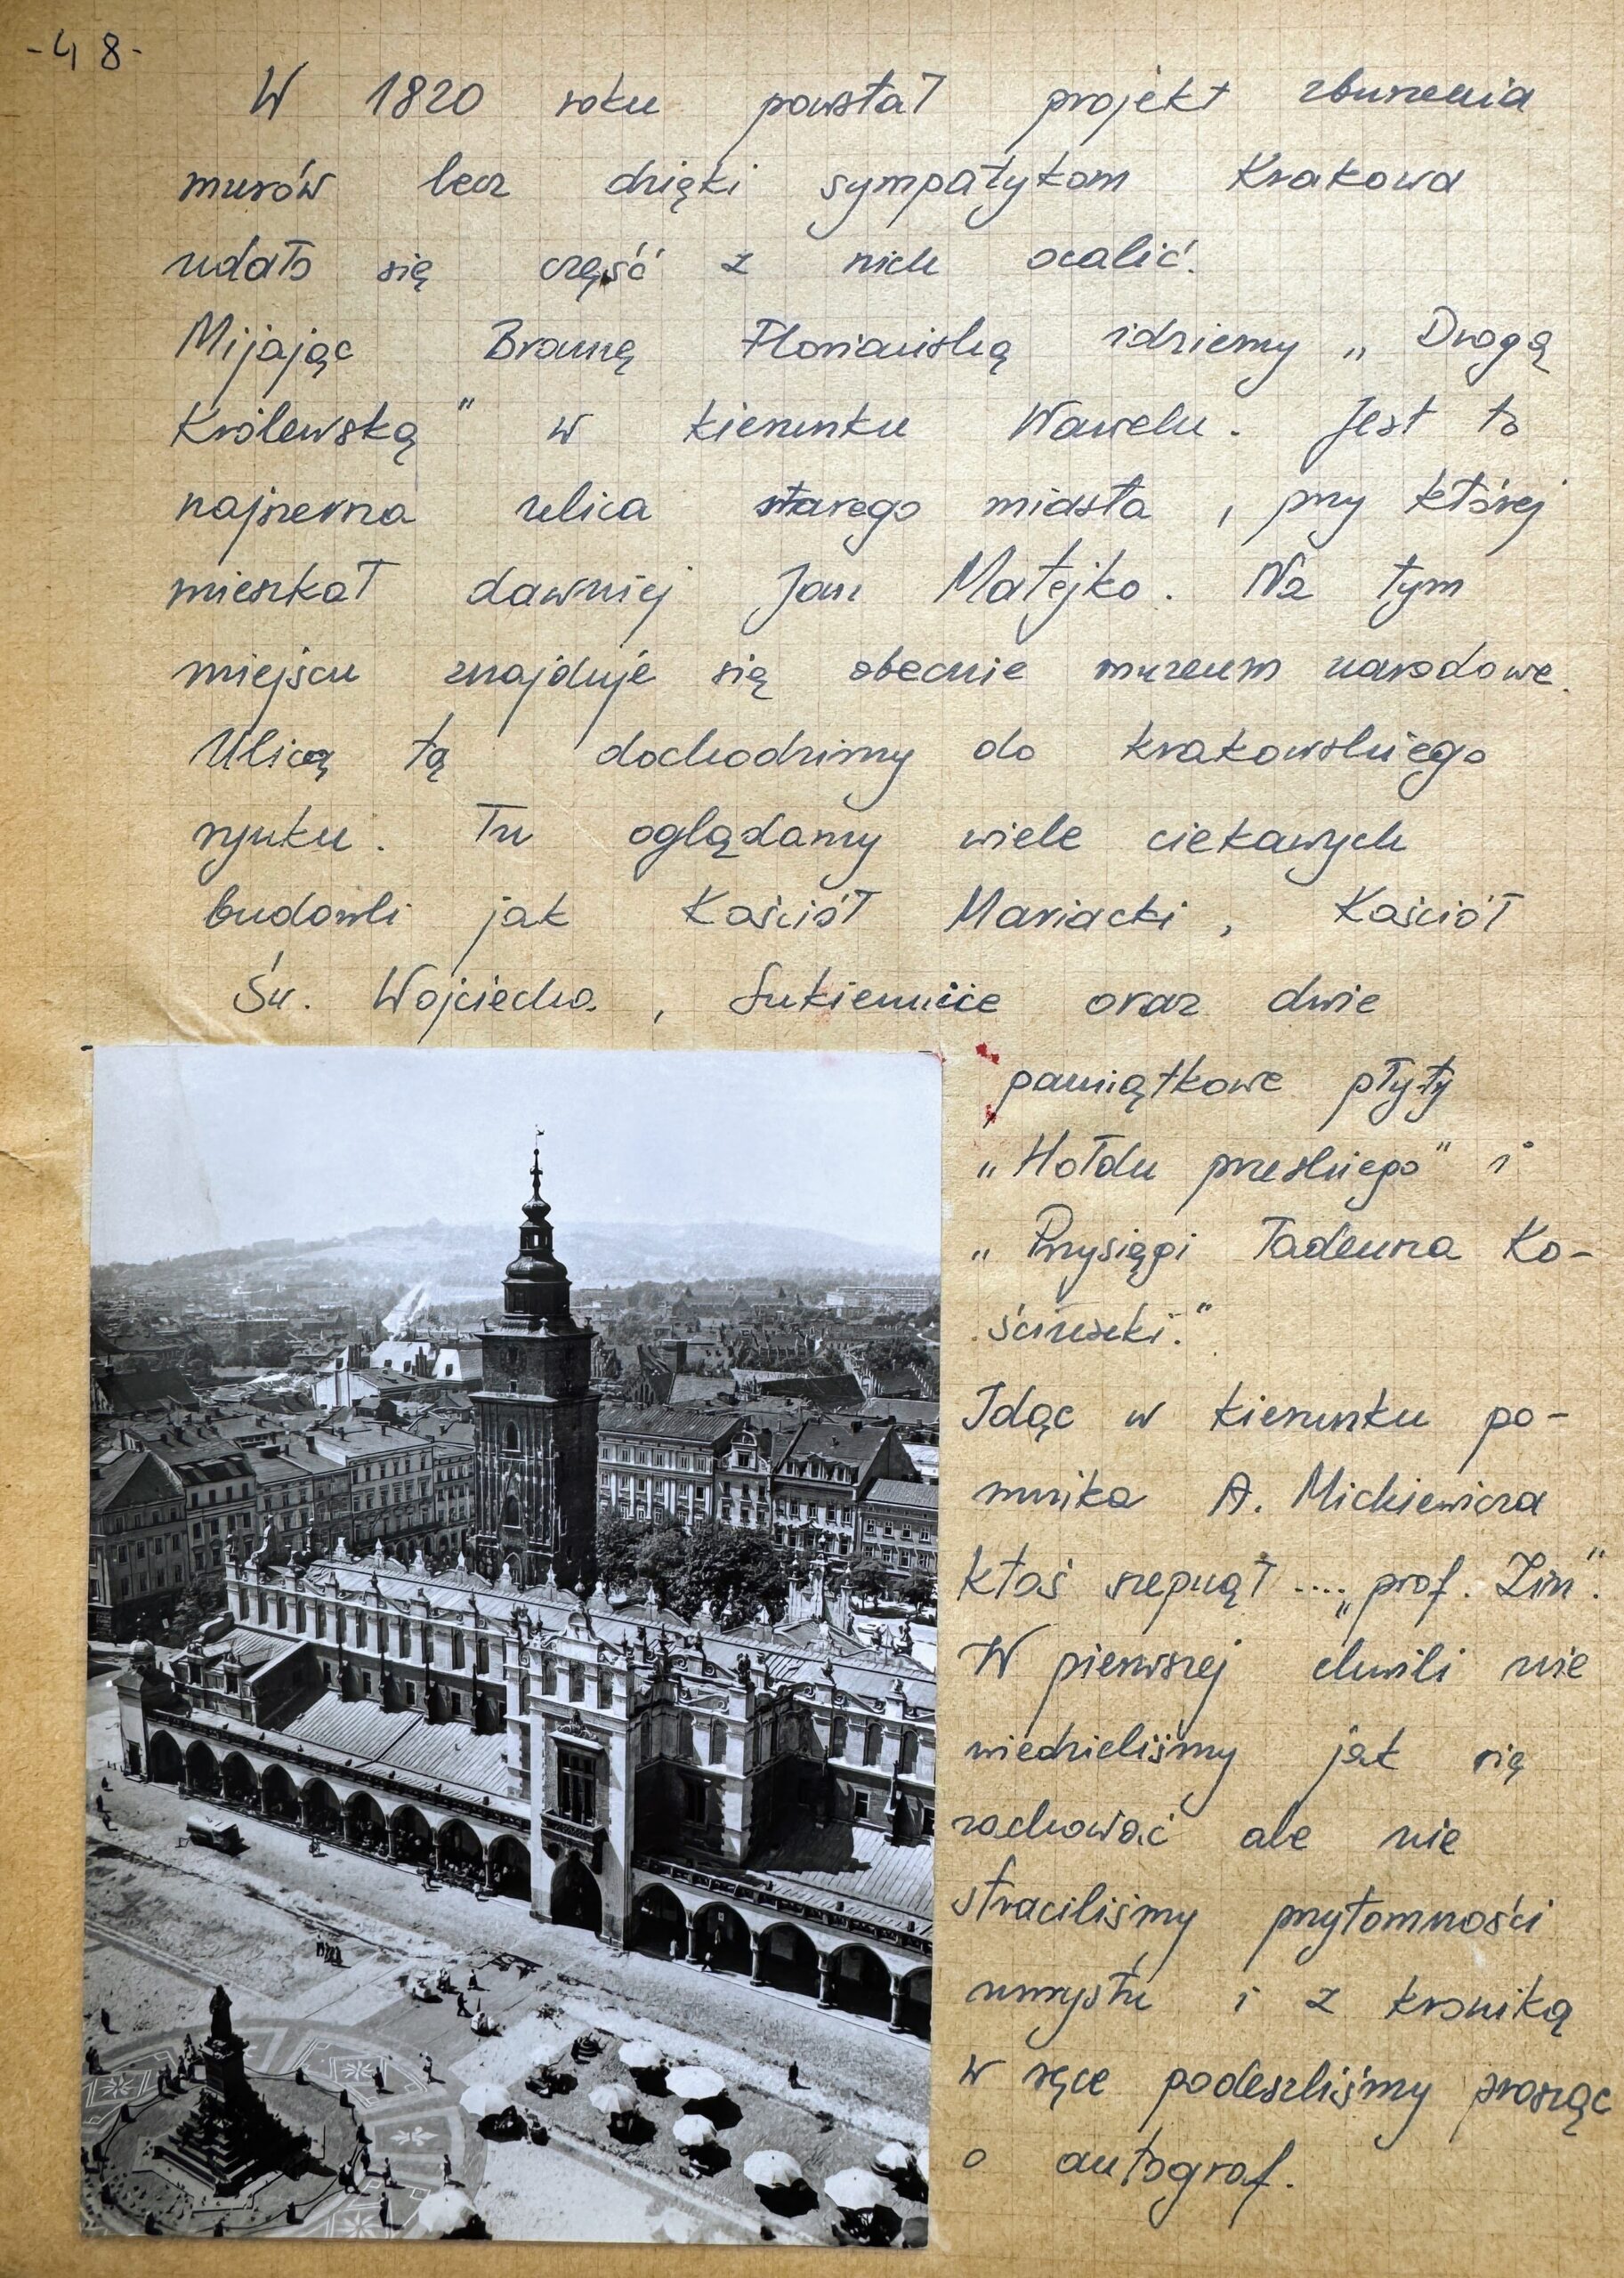 -48-
W 1820 roku powstał projekt zburzenia
murów lecz dzięki sympatykom Krakowa
udało się część z nich ocalić.
Mijając Bramę Floriańską idziemy „Drogą
Królewską" w kierunku Wawelu. Jest to
najszersza ulica starego miasta, przy której
mieszkał dawniej Jan Matejko. Na tym
miejscu znajduje się obecnie muzeum narodowe.
Ulicą tą dochodzimy do krakowskiego
rynku. Tu oglądamy wiele ciekawych
budowli jak Kościół Mariacki, Kościół
Św. Wojciecha, Sukiennice oraz dwie
pamiątkowe płyty
„Hołdu pruskiego" i
„Przysięgi Tadeusza Ko-
ściuszki."
Idąc w kierunku po-
mnika A. Mickiewicza
ktoś szepnął ....„prof. Zin".
W pierwszej chwili nie
wiedzieliśmy jak się
zachować ale nie
straciliśmy przytomności
umysłu i z kroniką
w ręce podeszliśmy prosząc
o autograf.